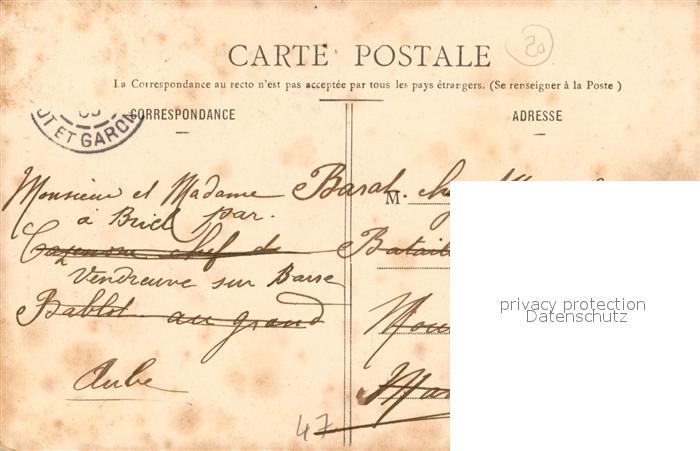 20
CARTE POSTALE
La Correspondance au recto n'est pas acceptée par tous les pays étrangers. (Se renseigner à la Poste)
CORRESPONDANCE
ADRESSE
OT ET GARON
Monsieur et Madame Barat. chez
M.
à Briel par.
chef de Batail
Vendreuve sur Barse
Bablot au grand
Aube
47
privacy protection
Datenschutz